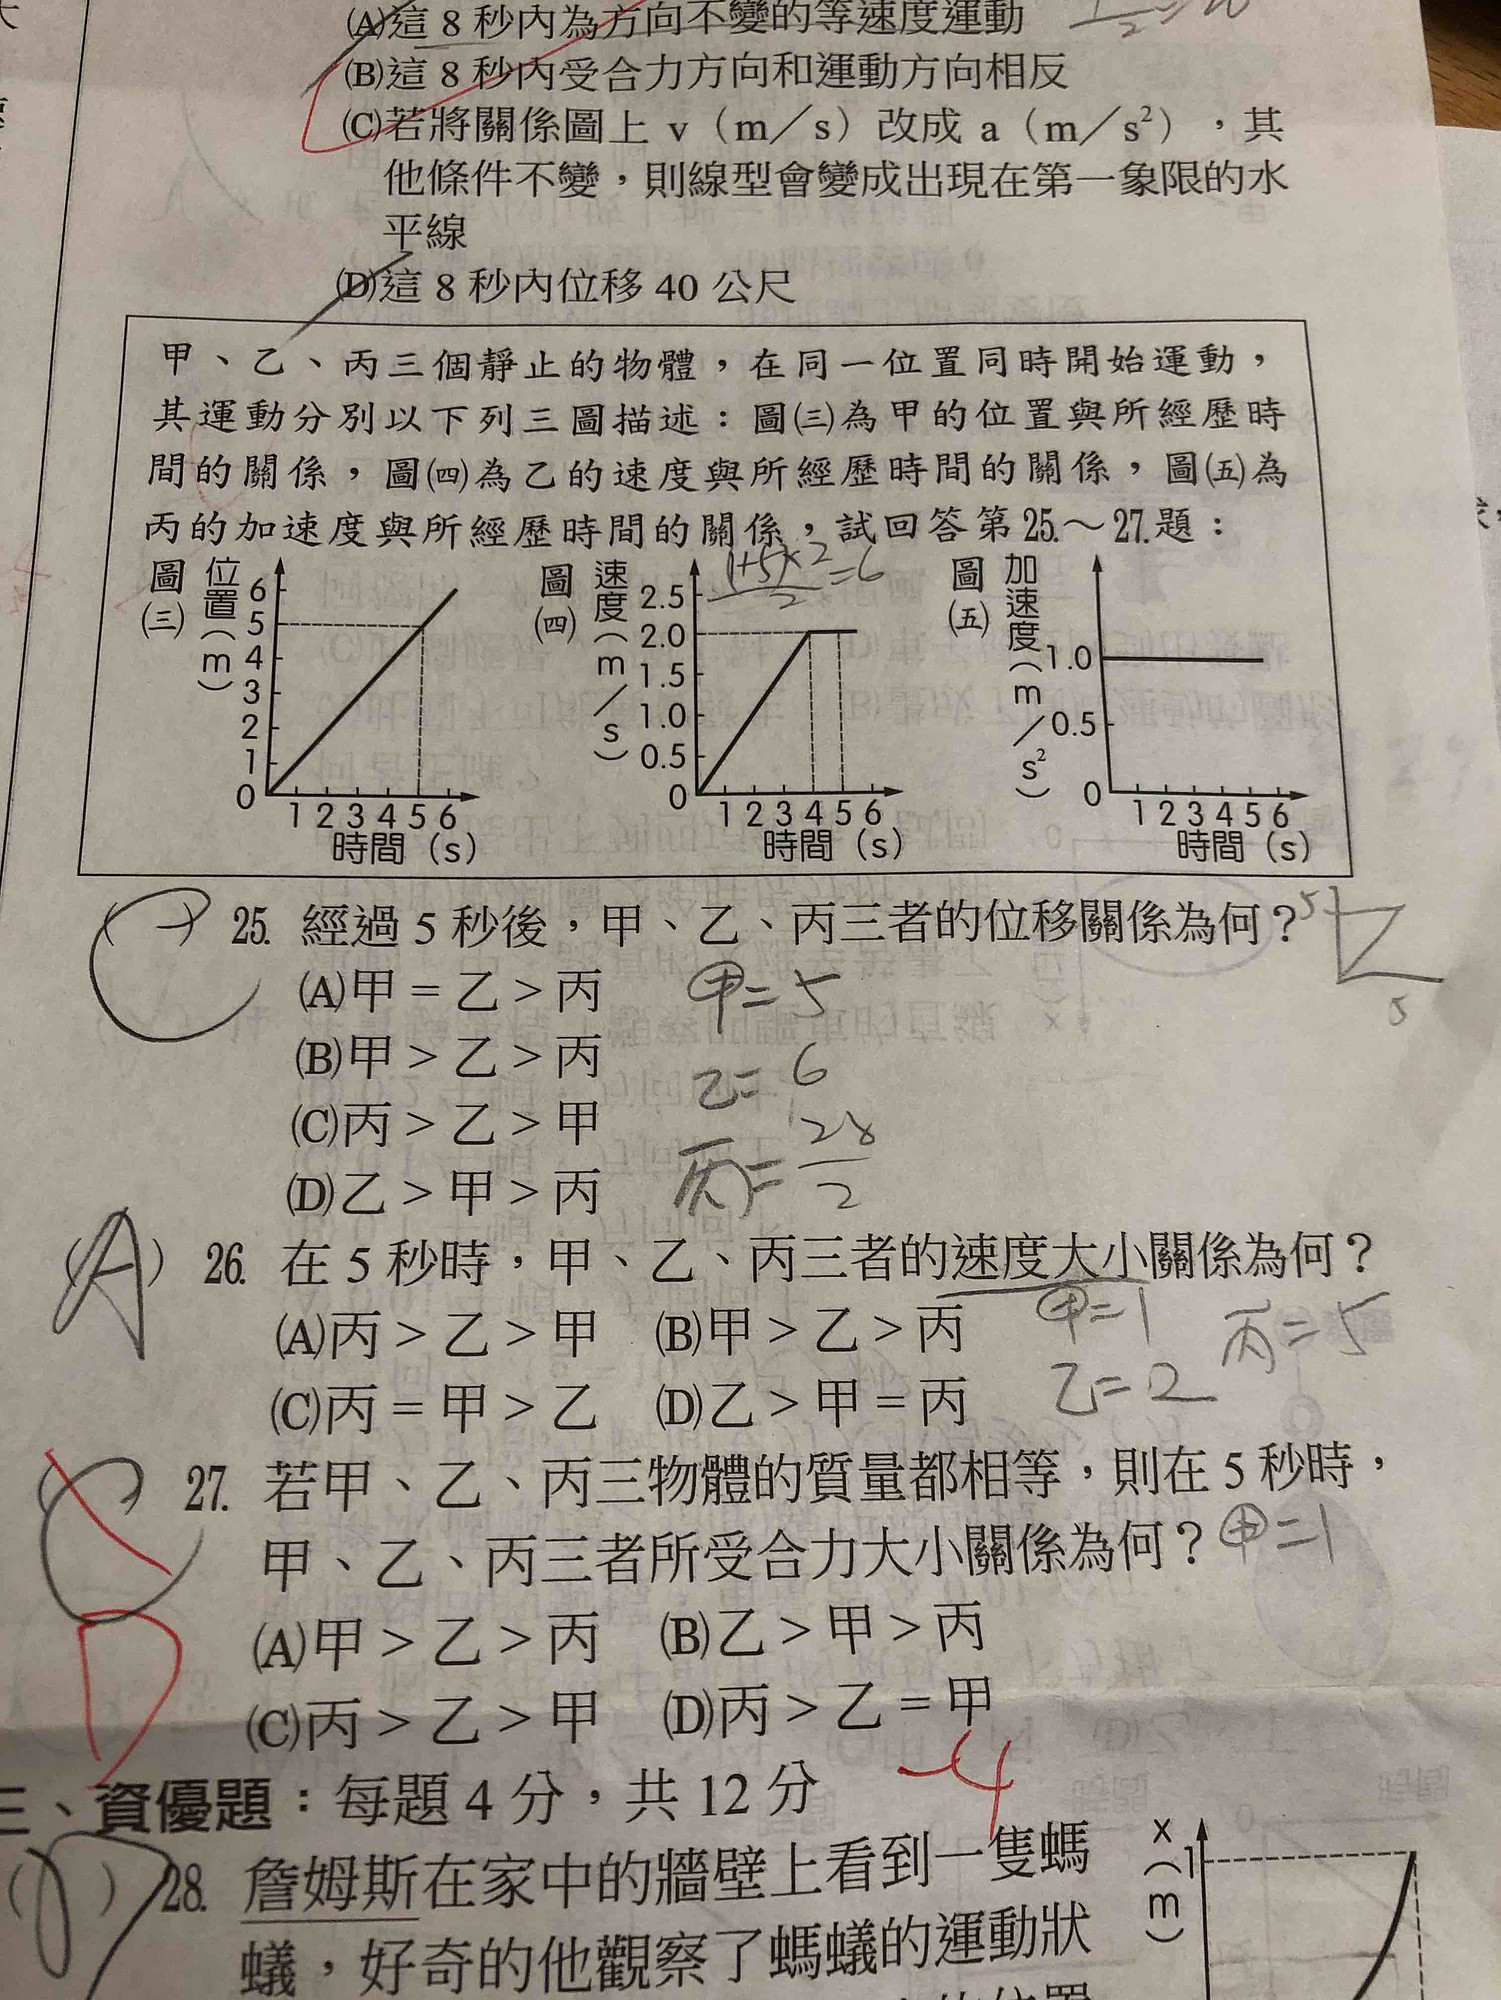 (A)這 8 秒內為方向不變的等速度運動
(B)這 8 秒內受合力方向和運動方向相反
(C)若將關係圖上 v（m／s）改成 a（m／s²），其
他條件不變，則線型會變成出現在第一象限的水
平線
(D)這 8 秒內位移 40 公尺
甲、乙、丙三個靜止的物體，在同一位置同時開始運動，
其運動分別以下列三圖描述：圖㈢為甲的位置與所經歷時
間的關係，圖㈣為乙的速度與所經歷時間的關係，圖㈤為
丙的加速度與所經歷時間的關係，試回答第25.～27.題：
圖㈢
位置（m）
6
5
4
3
2
1
0
1 2 3 4 5 6
時間（s）
圖㈣
速度（m／s）
(1+5)×2/2=6
2.5
2.0
1.5
1.0
0.5
0
1 2 3 4 5 6
時間（s）
圖㈤
加速度（m／s²）
1.0
0.5
0
1 2 3 4 5 6
時間（s）
(C) 25. 經過 5 秒後，甲、乙、丙三者的位移關係為何？
5
5
(A)甲＝乙＞丙
甲=5
(B)甲＞乙＞丙
乙=6
(C)丙＞乙＞甲
(D)乙＞甲＞丙
(A) 26. 在 5 秒時，甲、乙、丙三者的速度大小關係為何？
(A)丙＞乙＞甲 (B)甲＞乙＞丙
甲=1
丙=5
(C)丙＝甲＞乙 (D)乙＞甲＝丙
乙=2
(C) 27. 若甲、乙、丙三物體的質量都相等，則在 5 秒時，
甲、乙、丙三者所受合力大小關係為何？
甲=1
D
(A)甲＞乙＞丙 (B)乙＞甲＞丙
(C)丙＞乙＞甲 (D)丙＞乙＝甲
-4
三、資優題：每題 4 分，共 12 分
28. 詹姆斯在家中的牆壁上看到一隻螞
蟻，好奇的他觀察了螞蟻的運動狀
x（m）
1